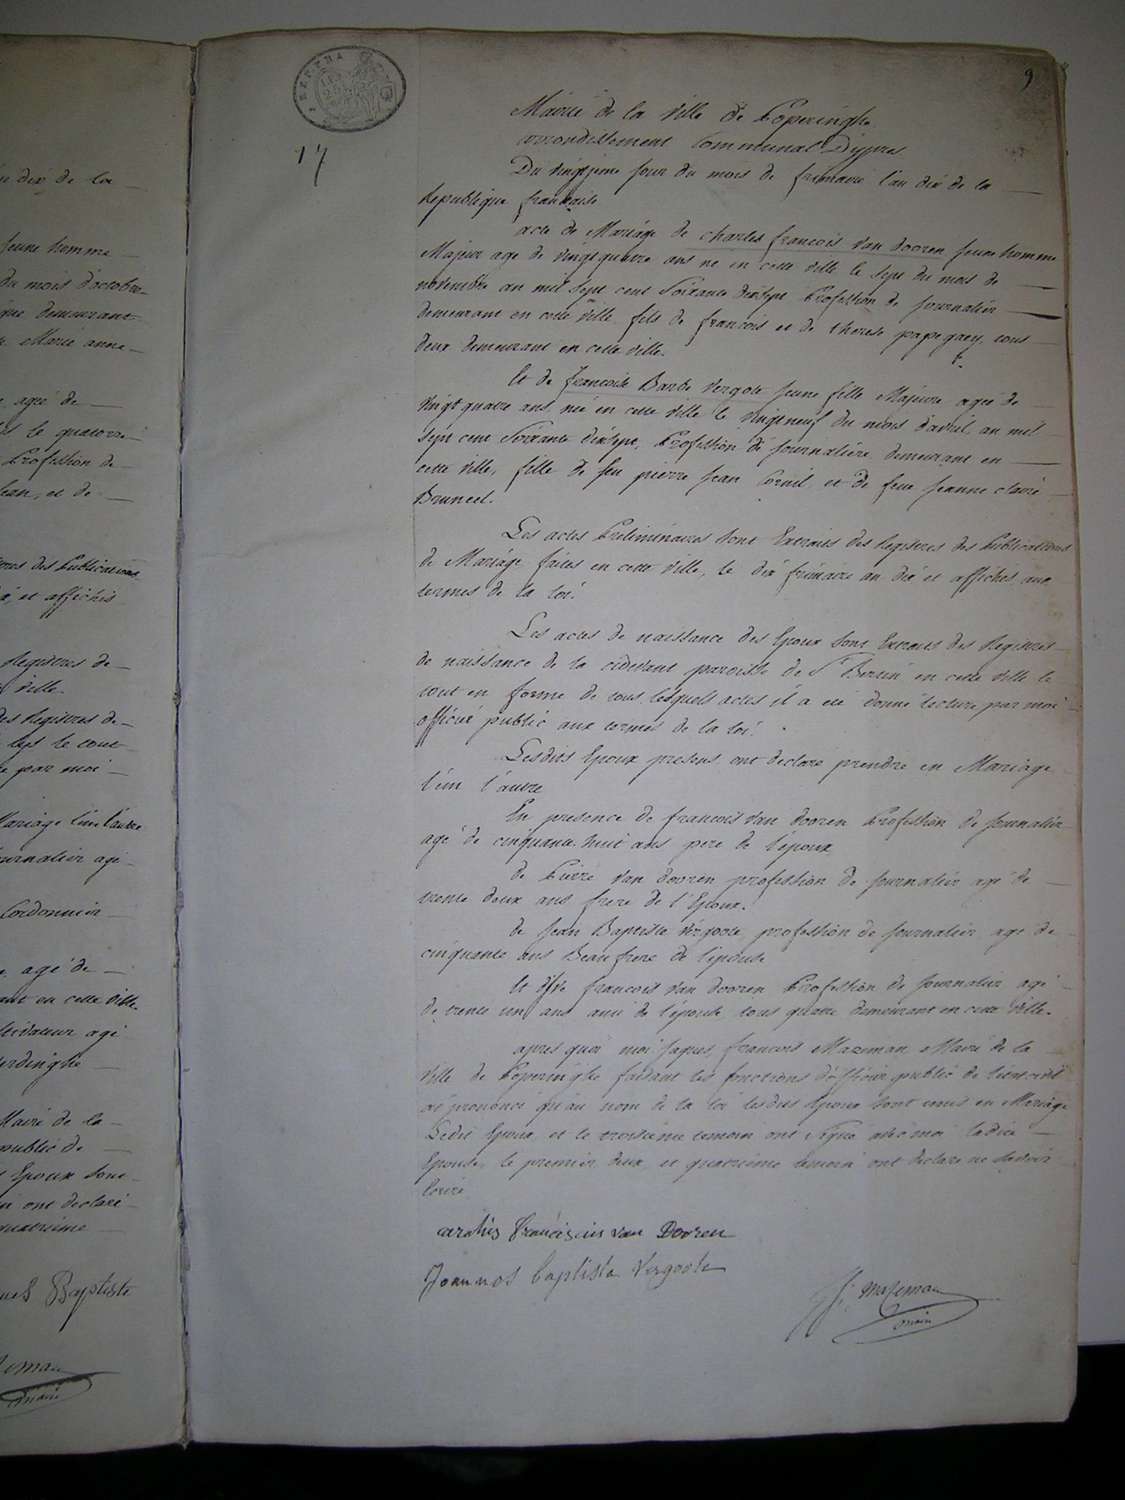 9
17
Mairie de la ville de Poperinghe
arrondissement Communal Dypres
Du vingtieme jour du mois de frimaire l'an dix de la
Republique francaise
acte de Mariage de charles francois van dooren jeune homme
Majeur age de vingt quatre ans né en cette ville le sept du mois de
novembre an mil sept cent Soixante dixsept Profession de journalier
demeurant en cette ville fils de francois et de therese papegaey tous
deux demeurant en cette ville.
Et de francoise Barbe Vergote jeune fille Majeure agée de
vingt quatre ans, née en cette ville le vingtneuf du mois d'avril an mil
sept cent Soixante dixsept, Profession de journalière demeurant en
cette ville, fille de feu pierre jean Cornil et de feue jeanne claire
Bruneel.
Les actes Préliminaires sont Extraits des Registres des Publications
de Mariage faites en cette ville, le dix frimaire an dix et affichés aux
termes de la loi.
Les actes de naissance des Epoux sont Extraits des Registres
de naissance de la cidevant paroisse de St Bertin en cette ville le
tout en forme de tous lesquels actes il a été donné lecture par moi
officier public aux termes de la loi.
Lesdits Epoux presens ont declaré prendre en Mariage
l'un l'autre
En presence de francois van dooren Profession de journalier
agé de cinquante huit ans pere de l'époux
de Pierre van dooren profession de journalier agé de
trente deux ans frere de l'Epoux.
de jean Baptiste vergote profession de journalier agé de
cinquante ans Beaufrere de l'épouse
Et de francois van dooren Profession de journalier agé
de trente un ans ami de l'épouse tous quatre demeurant en cette ville.
après quoi moi jaques francois Mazeman Maire de la
ville de Poperinghe faisant les fonctions d'officier public de l'état civil
ai prononcé qu'au nom de la loi lesdits Epoux sont unis en Mariage
Ledit Epoux et le troisieme temoin ont signé avec moi ladite
Epouse, le premier, deux et quatrieme temoin ont declaré ne savoir
Ecrire
carolus franciscus van Dooren
Joannes baptista vergote
Mazeman
maire